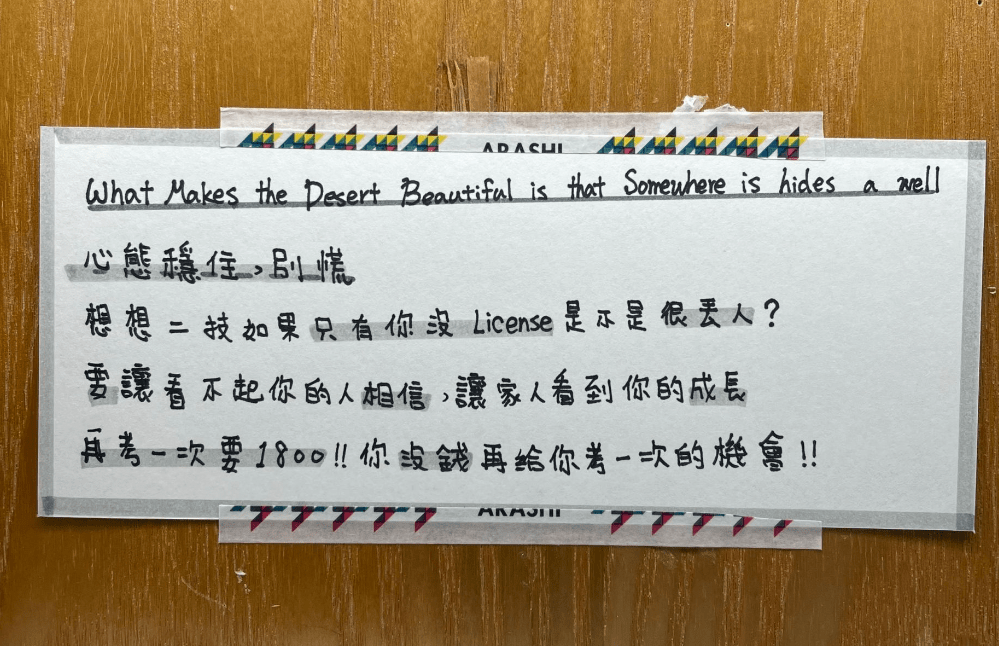 ARASHI
What Makes the Desert Beautiful is that Somewhere is hides a well
心態穩住,別慌
想想二技如果只有你沒 License 是不是很丟人?
要讓看不起你的人相信,讓家人看到你的成長
再考一次要1800!!你沒錢再給你考一次的機會!!
ARASHI